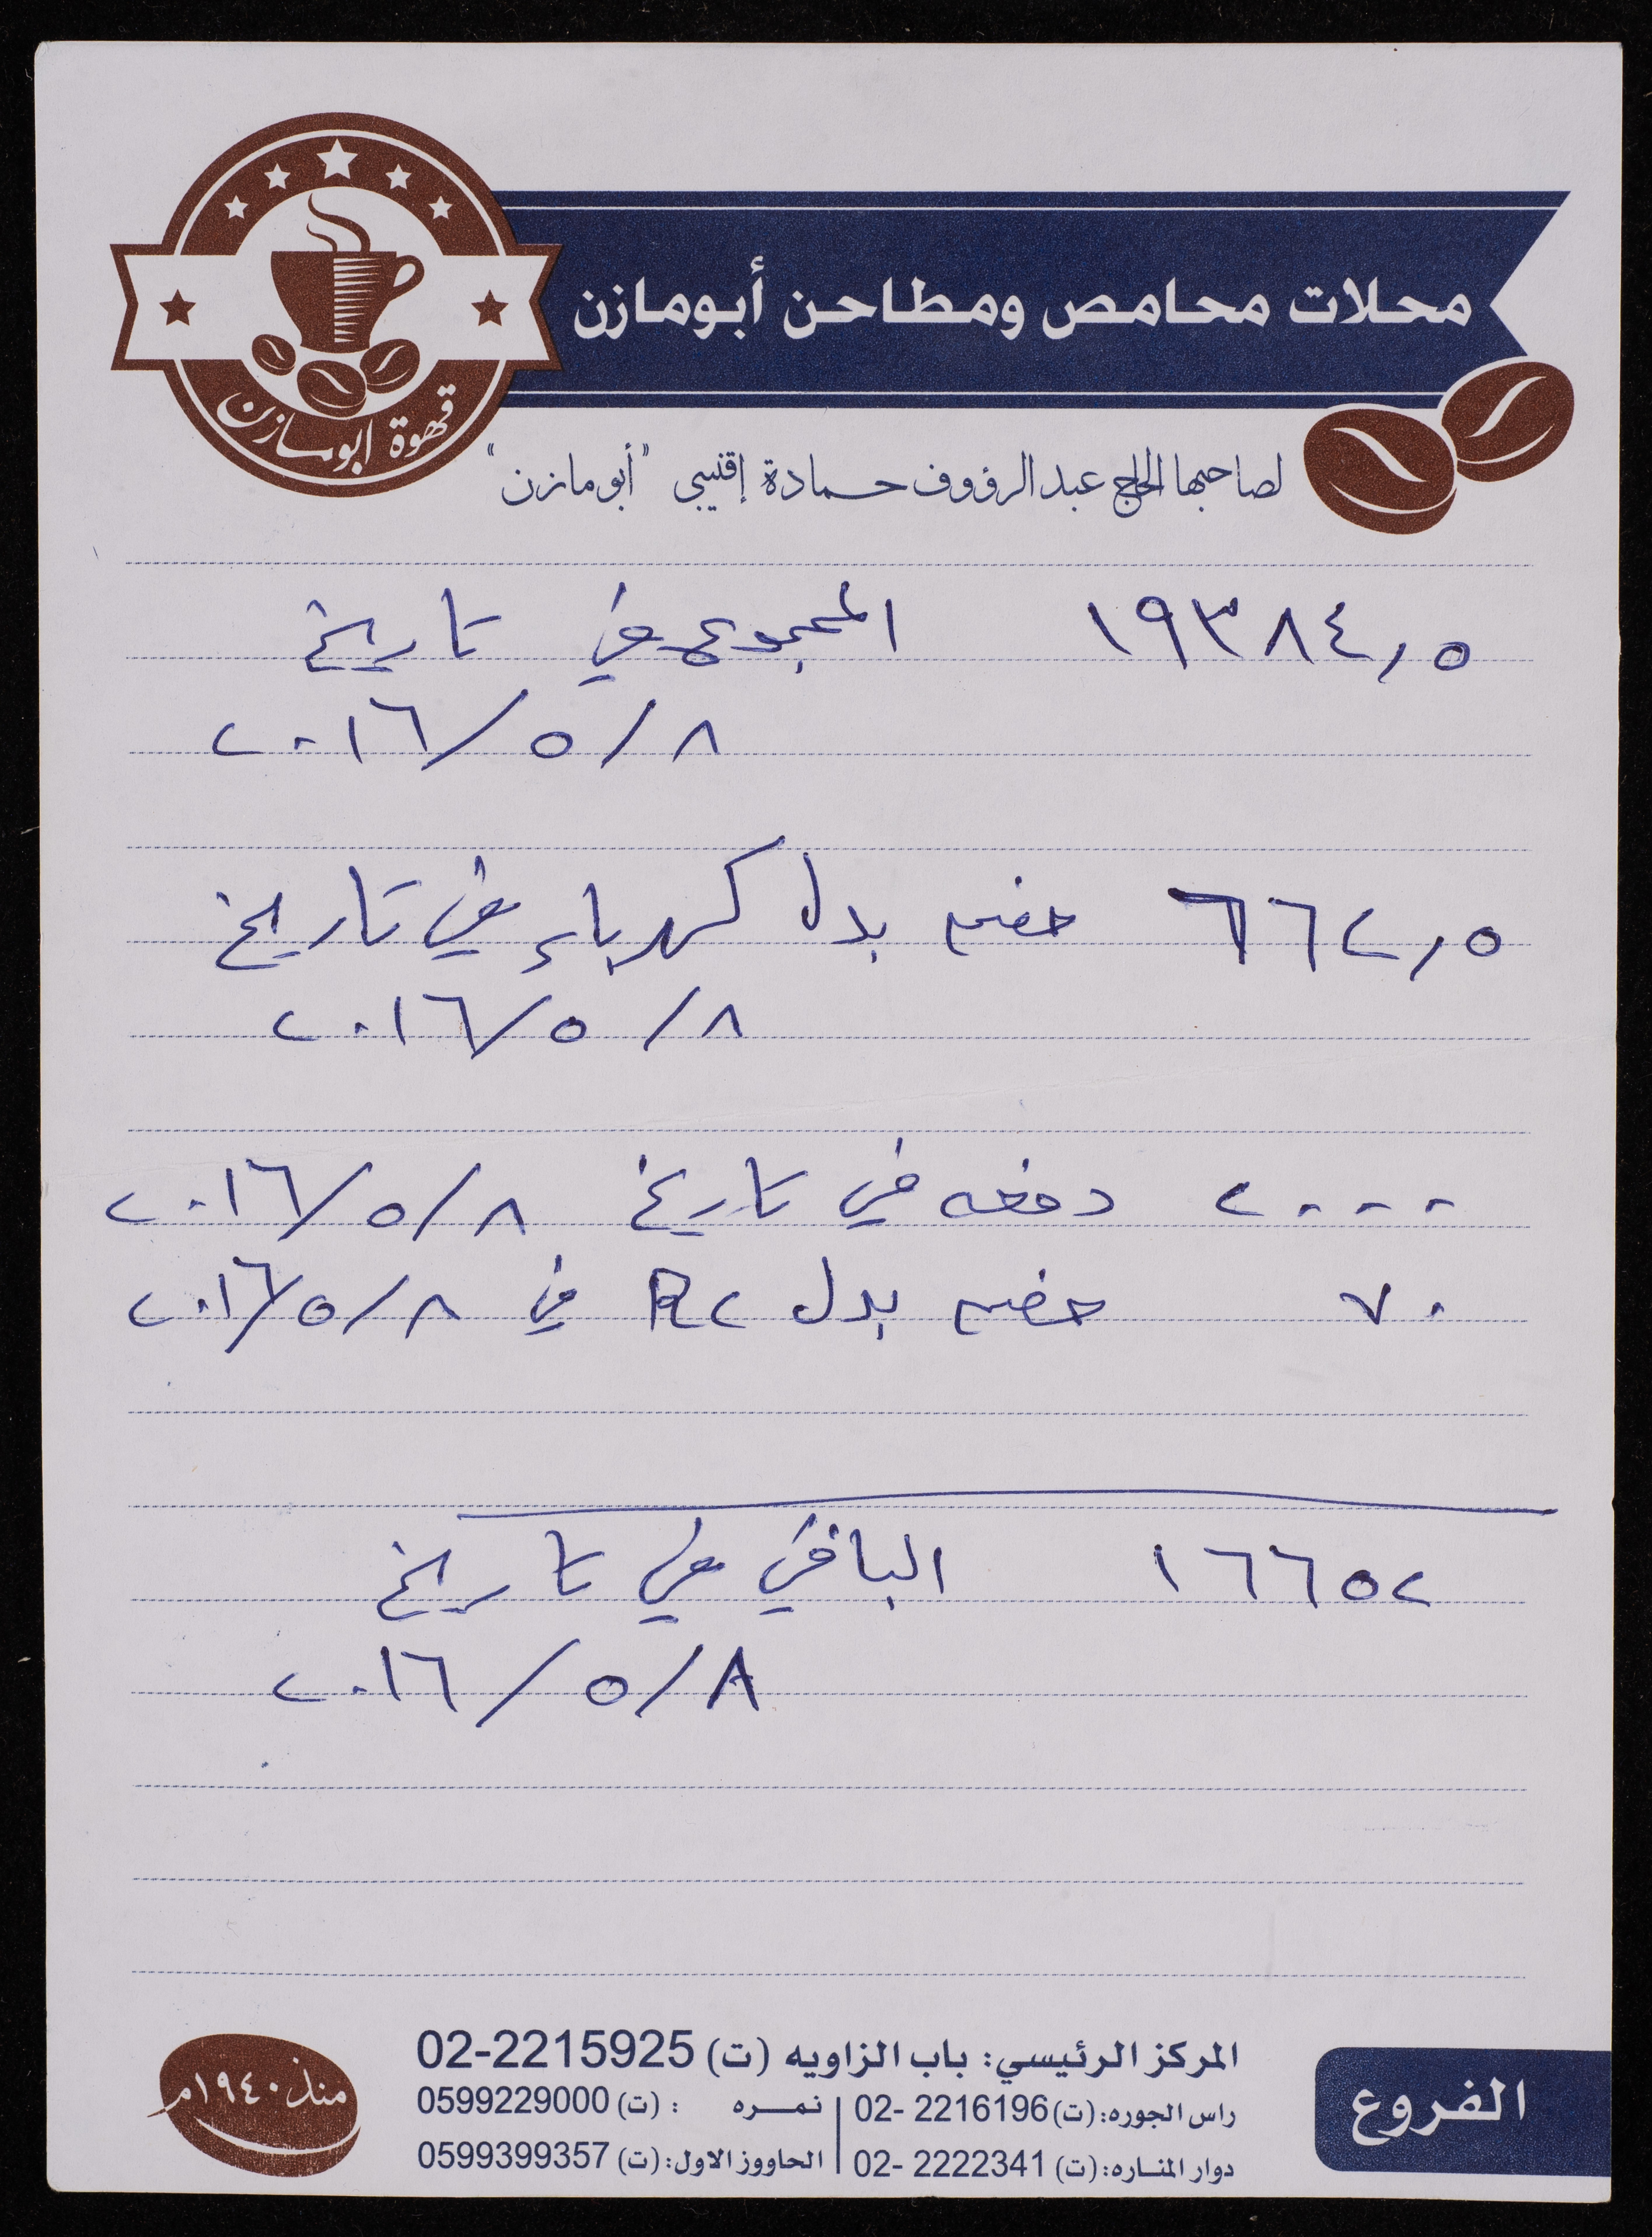 محلات محامص ومطاحن أبومازن
قهوة ابومازن
لصاحبها الحاج عبد الرؤوف حمادة إقنيبي "أبو مازن"
١٩٣٨٤,٥ المجموع في تاريخ
٢٠١٦/٥/٨
٦٦٢,٥ خصم بدل كهرباء في تاريخ
٢٠١٦/٥/٨
٢٠٠٠ دفعه في تاريخ ٢٠١٦/٥/٨
٧٠ خصم بدل في ٢٠١٦/٥/٨
١٦٦٥٢ الباقي في تاريخ
٢٠١٦/٥/٨
الفروع
المركز الرئيسي: باب الزاويه (ت) 02-2215925
راس الجوره: (ت) 02- 2216196 | نمره : (ت) 0599229000
دوار المناره: (ت) 02- 2222341 | الحاووز الاول: (ت) 0599399357
منذ ١٩٤٠م